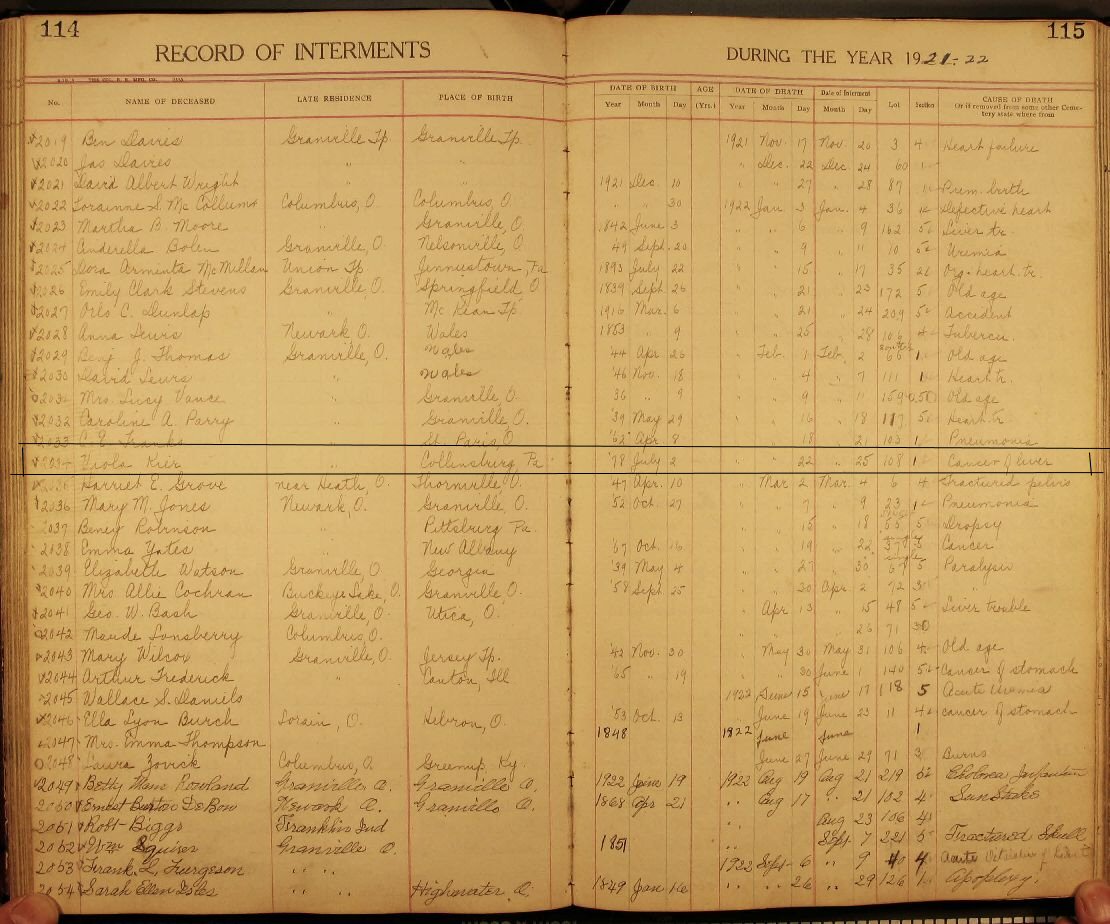 114
115
RECORD OF INTERMENTS
DURING THE YEAR 1921-22
No. NAME OF DECEASED LATE RESIDENCE PLACE OF BIRTH DATE OF BIRTH AGE DATE OF DEATH Date of Interment Lot CAUSE OF DEATH
Year Month Day (Yrs.) Year Month Day Month Day Or if removed from some other Cemetery state where from
2019 Ben Davies Granville Tp. Granville Tp. 1921 Nov. 17 Nov. 20 3 4 Heart failure
2020 Jas Davies " " " Dec. 22 Dec. 24 60 1
2021 David Albert Wright " " 1921 Dec. 10 " " 27 " 28 87 1 Prem. birth
2022 Lorainne S. McCollums Columbus, O. Columbus, O. " " 30 1922 Jan. 3 Jan. 4 36 1 Defective heart
2023 Martha B. Moore " Granville, O. 1842 June 3 " " 6 " 9 162 5 Liver tr.
2024 Cinderella Bolen Granville, O. Nelsonville, O. 49 Sept. 20 " " 9 " 11 10 5 Uremia
2025 Dora Arminta McMillan Union Tp Jennustown, Pa 1893 July 22 " " 15 " 17 35 2 Org. heart tr.
2026 Emily Clark Stevens Granville, O. Springfield, O 1839 Sept. 26 " " 21 " 23 172 5 Old age
2027 Orlo C. Dunlap " McKean Tp. 1916 Mar. 6 " " 21 " 24 209 5 Accident
2028 Anna Lewis Newark O. Wales 1853 " 9 " " 25 " 28 106 4 Tubercu.
2029 Benj. J. Thomas Granville, O. Wales '44 Apr. 26 " Feb. 1 Feb. 2 66 1 Old age
2030 David Lewis " Wales '46 Nov. 18 " " 4 " 7 111 1 Heart tr.
2031 Mrs. Lucy Vance " Granville, O. 36 " 9 " " 9 " 11 159 Old age
2032 Caroline A. Parry " Granville, O. '39 May 29 " " 16 " 18 117 5 Heart tr.
2033 C. E. Franks " St. Paris, O. '62 Apr. 8 " " 18 " 21 103 1 Pneumonia
2034 Viola Kier " Collinsburg, Pa '78 July 2 " " 22 " 25 108 1 Cancer of liver
2035 Harriet E. Grove near Heath, O. Thornville O. 47 Apr. 10 " Mar. 2 Mar. 4 6 4 Fractured pelvis
2036 Mary M. Jones Newark, O. Granville, O. '52 Oct. 27 " " 7 " 9 23 1 Pneumonia
2037 Beney Robinson Pittsburg Pa. " " 15 " 18 55 5 Dropsy
2038 Emma Yates " New Albany '67 Oct. 16 " " 19 " 22 Cancer
2039 Elizabeth Watson Granville, O. Georgia '39 May 4 " " 27 " 30 67 5 Paralysis
2040 Mrs. Allie Cochran Buckeye Lake, O. Granville, O. '58 Sept. 25 " " 30 Apr. 2 72 3 "
2041 Geo. W. Bash Granville, O. Utica, O. " Apr. 13 " 15 48 5 Liver trouble
2042 Maude Lonsberry Columbus, O. " " " 26 71 3
2043 Mary Wilcox Granville, O. Jersey Tp. '42 Nov. 30 " May 30 May 31 106 4 Old age
2044 Arthur Frederick " Canton, Ill '65 " 19 " " 30 June 1 140 5 Cancer of stomach
2045 Wallace S. Daniels 1922 June 15 June 17 118 5 Acute Uremia
2046 Ella Lyon Burch Lorain, O. Hebron, O. '53 Oct. 13 June 19 June 23 11 4 cancer of stomach
2047 Mrs. Emma Thompson 1848 1822 June June 1
2048 Laura Zovick Columbus, O. Greenup, Ky. June 27 June 29 71 3 Burns
2049 Betty Mam Rowland Granville O. Granville O. 1922 June 19 1922 Aug 19 Aug 21 219 5 Cholorea Infantum
2050 Ernest Burton DeBow Newark O. Granville O. 1868 Apr 21 " Aug 17 " 21 102 4 Sun Stroke
2051 Robt Biggs Franklin Ind " Aug 23 106 4
2052 Wm Squiser Granville O. 1851 " Sept 7 221 5 Fractured Skull
2053 Frank L. Furgeson " " 1922 Sept 6 " 9 40 4 Acute
2054 Sarah Ellen Isles " " Highwater O. 1849 Jan 16 " " 26 " 29 126 1 Apoplexy.